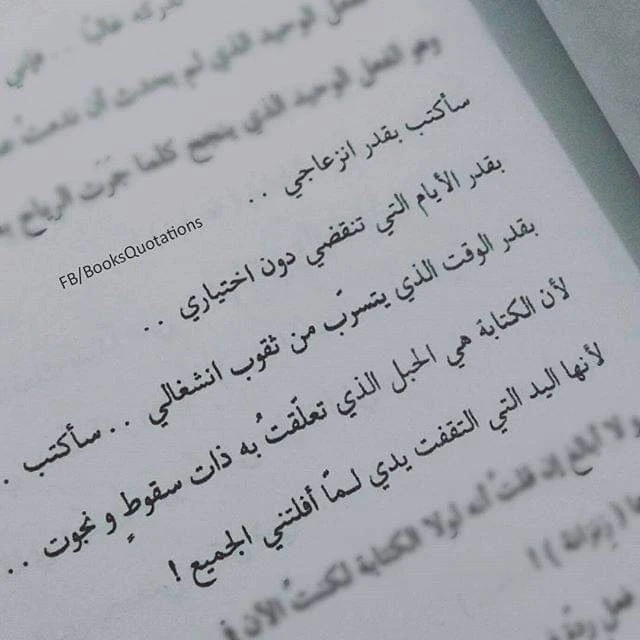 وهو الفعل الوحيد الذي ينجح كلما جرَت الرياح
سأكتب بقدر انزعاجي ..
بقدر الأيام التي تنقضي دون اختياري ..
بقدر الوقت الذي يتسرّب من ثقوب انشغالي .. سأكتب .
لأن الكتابة هي الحبل الذي تعلّقتُ به ذات سقوطٍ و نجوت ..
لأنها اليد التي التقفت يدي لـمّا أفلتني الجميع !
FB/BooksQuotations
لولا الكتابة لكنتُ الآن